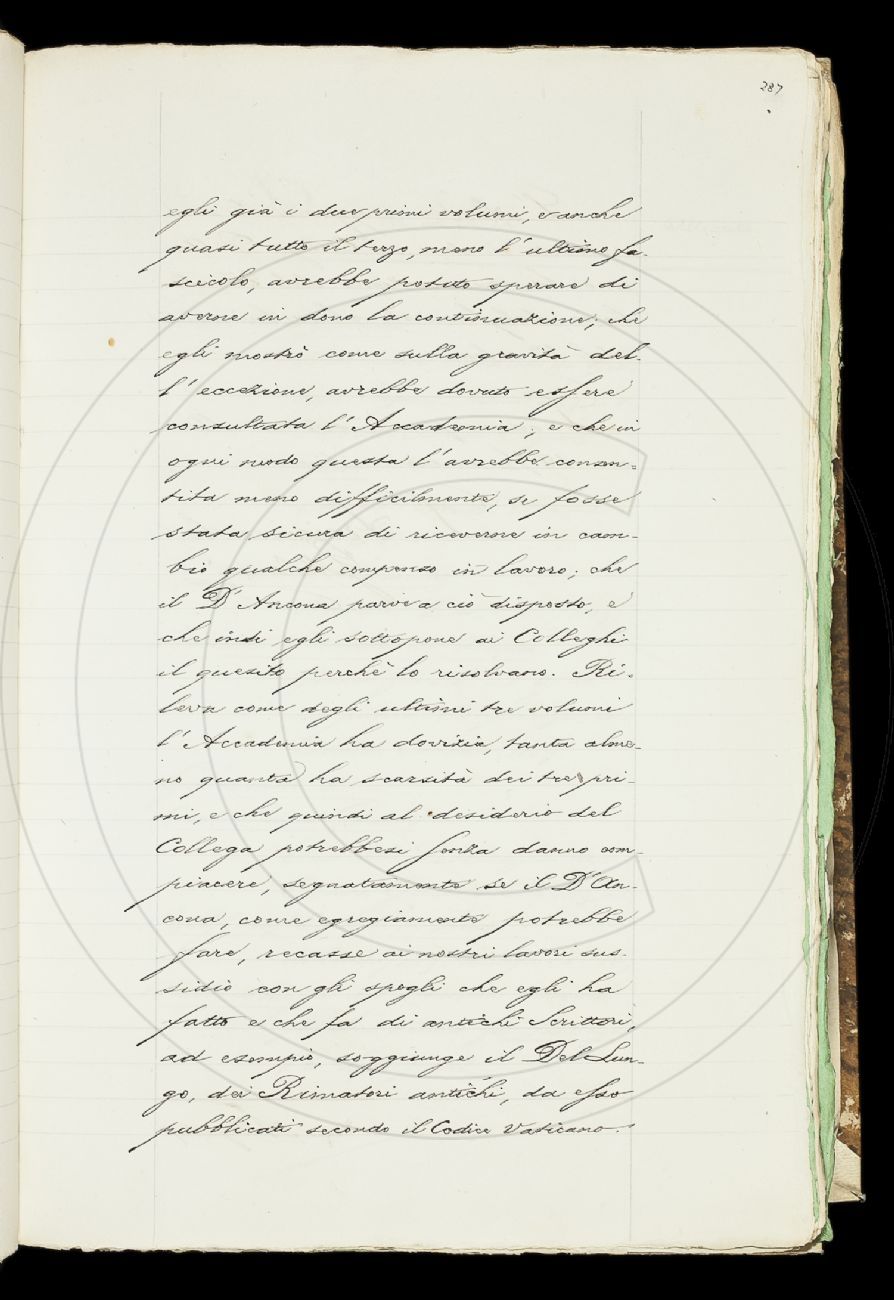 287
egli già i due primi volumi, e anche
quasi tutto il terzo, meno l'ultimo fa-
scicolo, avrebbe potuto sperare di
averne in dono la continuazione; che
egli mostrò come sulla gravità del-
l'eccezione, avrebbe dovuto essere
consultata l'Accademia; e che in
ogni modo questa l'avrebbe consen=
tita meno difficilmente, se fosse
stata sicura di riceverne in cam-
bio qualche compenso in lavoro; che
il D'Ancona parve a ciò disposto, e
che indi egli sottopone ai Colleghi
il quesito perchè lo risolvano. Ri-
leva come degli ultimi tre volumi
l'Accademia ha dovizia, tanta alme-
no quanta ha scarsità dei tre pri-
mi, e che quindi al desiderio del
Collega potrebbesi senza danno com-
piacere, segnatamente se il D'An-
cona, come egregiamente potrebbe
fare, recasse ai nostri lavori sus-
sidio con gli spogli che egli ha
fatto e che fa di antichi Scrittori,
ad esempio, soggiunge il Del Lun-
go, dei Rimatori antichi, da esso
pubblicati secondo il Codice Vaticano.